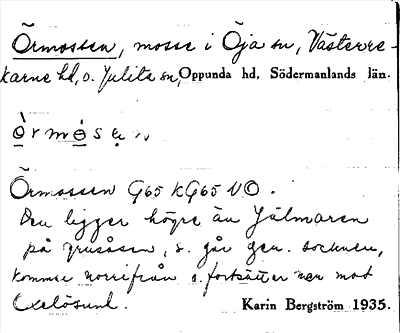 Örmossen, mosse i Öja sn, Västerre-
karne hd, o. Julita sn, Oppunda hd, Södermanlands län.
òrmósen
Örmossen G65 k G65 NO.
Den ligger högre än Hjälmaren
på grusåsen, s. går gen. socknen,
kommer norrifrån o. fortsätter ner mot
Oxelösund. Karin Bergström 1935.